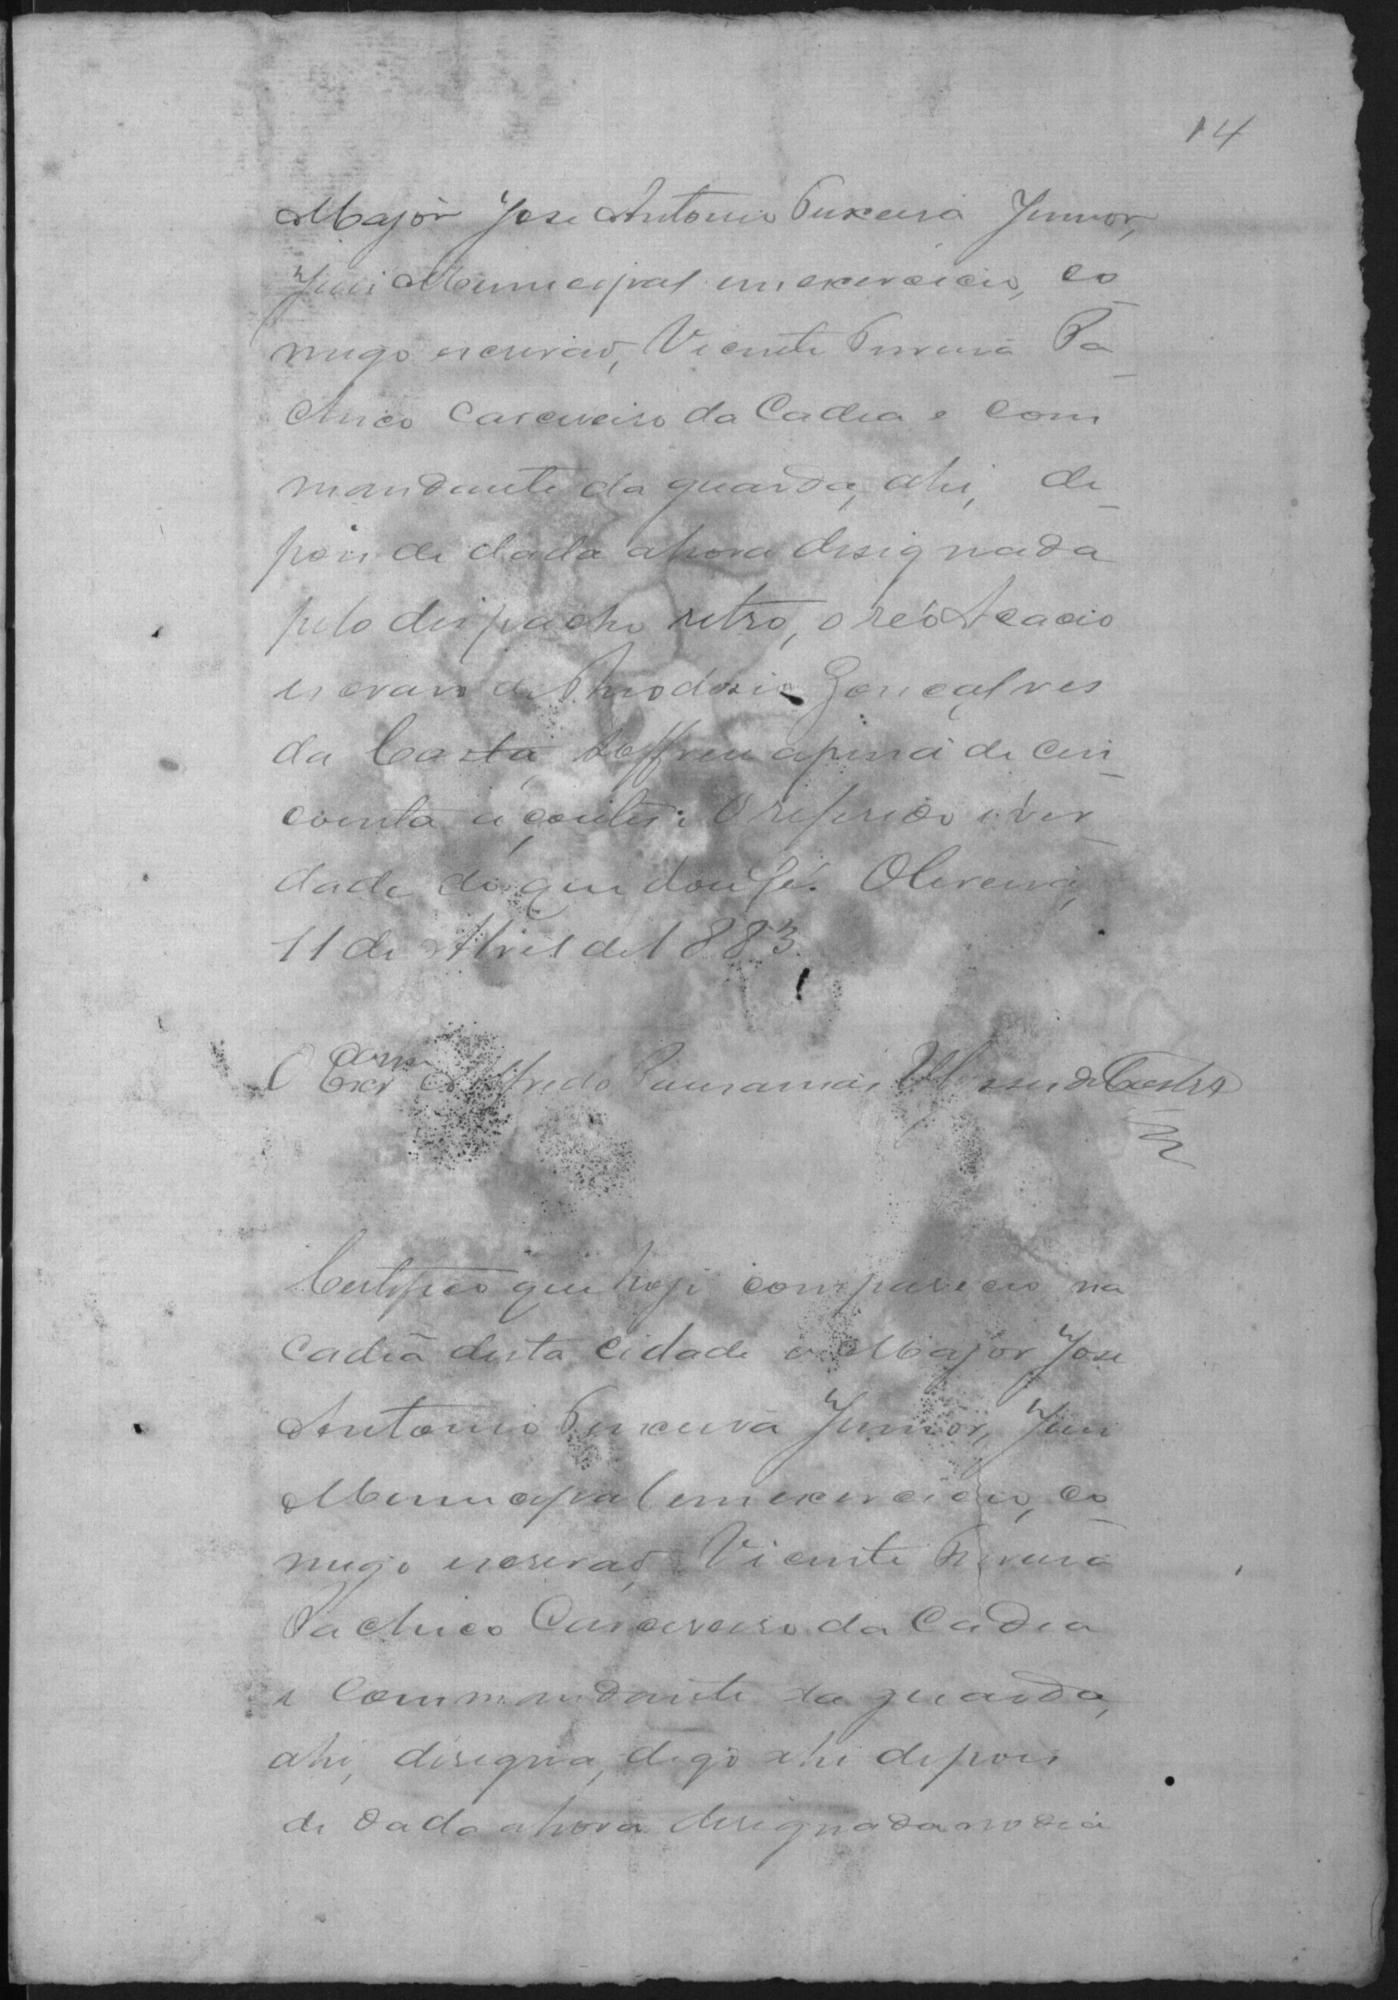 14
Major Jose Antonio Teixeira Junior,
Juis Municipal em exercicio, co_
migo escrivão, Vicente Pereira Pa_
checo Carcereiro da Cadea e com
mandante da guarda, ahi, de_
pois de dada a hora designada
pelo despacho retro, o reó Acacio
escravo de Theodosio Gonçalves
da Costa, soffreu a pena de cin_
coenta açoutes: O referido é ver_
dade do que dou fé. Oliveira,
11 de Abril de 1883.
O Escr Alfredo de Castro
Certifico que hoje compareceo na
cadea desta cidade o Major Jose
Antonio Teixeira Junior, Juis
Municipal em exercicio, co_
migo escrivão, Vicente Pereira
Pacheco Carcereiro da Cadea
e Commandante da guarda,
ahi, designa, digo ahi depois
de dada a hora designada no dia